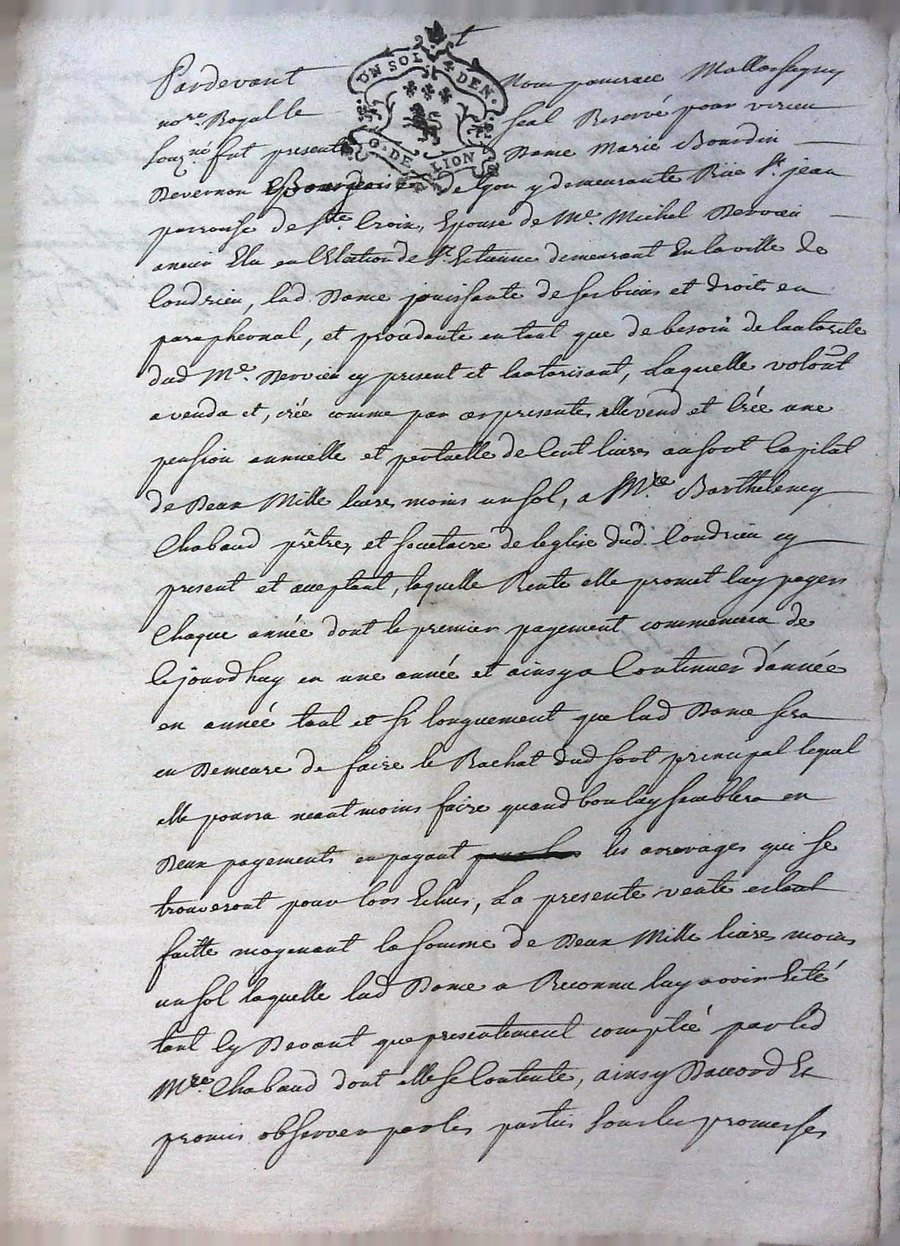 UN SOL 4 DEN.
G. DE LION
Pardevant Mallassagny
no.re Royalle seal Reservé pour virieu
souz.né fut presente Dame Marie Bourdin
Devernon Bourgeoise de Lyon y demeurante Rüe St. jean
parroisse de Ste. Croix, Epouse de Me. Michel Dervieu
ancien Elu en l'Election de St. Etienne demeurant En la ville de
Condrieu, lad. Dame jouissante de ses biens et droits en
paraphernal, et procedante en tant que de besoin de lautorité
dud Me. Dervieu cy present et lautorisant, Laquelle volont
a vendu et, créé comme par ces presentes elle vend et Crée une
pension annuelle et pertuelle de Cent livres au sort Capital
de Deux Mille livres moins un sol, a Mre. Barthelemy
Chabaud prêtre, et societaire de leglise dud. Condrieu cy
present et aceptant, laquelle Rente elle promet luy payer
Chaque année dont le premier payement commencera de
cejourdhuy en une année et ainsy a Continuer d'année
en année tant et si longuement que lad Dame sera
en Demeure de faire le Rachat dud sort principal lequel
elle pourra neantmoins faire quand bon luy semblera en
Deux payements en payant les arrerages qui se
trouveront pour lors Echus, La presente vente estant
faitte moyenant la somme de Deux Mille livres moins
un sol laquelle lad Dame a Reconnu luy avoir Eté
tant Cy Devant que presentement comptée par led
Mre. Chabaud dont elle se Contente, ainsy Daccord Et
promis observer par les parties sous les promesses